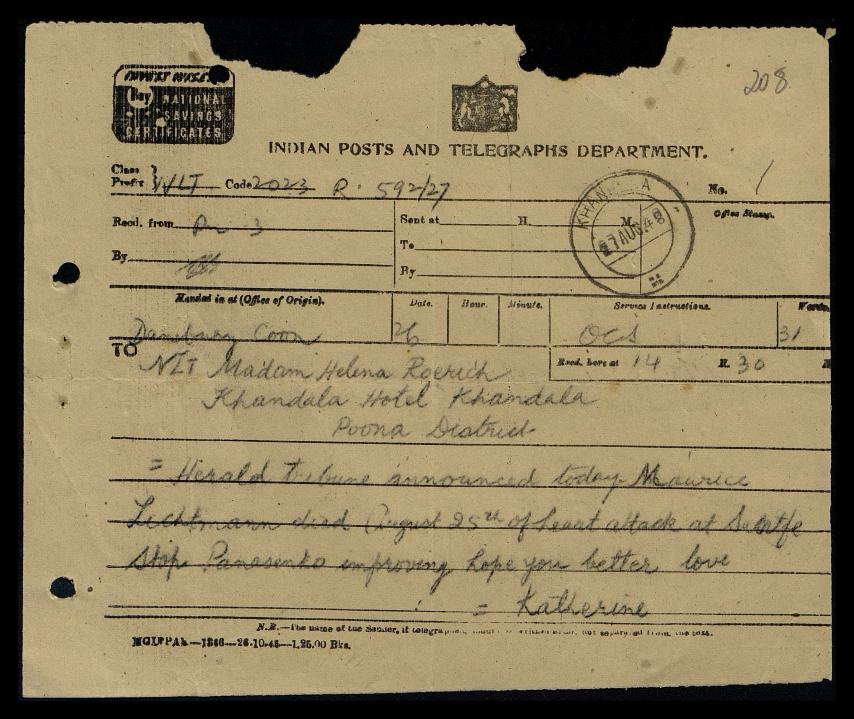 208
INVEST
Buy NATIONAL
SAVINGS
CERTIFICATES
INDIAN POSTS AND TELEGRAPHS DEPARTMENT.
Class
Prefix } NLT Code 2023 R. 592/27 No. 1
Recd. from 3 Sent at H. M. Office Stamp.
To
By By
KHANDALA
27 AUG 48
Handed in at (Office of Origin). Date. Hour. Minute. Service Instructions. Words.
Danebury Conn 26 OCS 31
TO Recd. here at 14 H. 30 M
NLT Madam Helena Roerich
Khandala Hotel Khandala
Poona District
= Herald tribune announced today Maurice
Lichtmann died August 25th of heart attack at Santfe
stop Panasenko improving hope you better love
= Katherine
N.B.—The name of the Sender, if telegraphed, written after, but separated from, the text.
MGIPPAh.—1366—26-10-45—1,25,00 Bks.